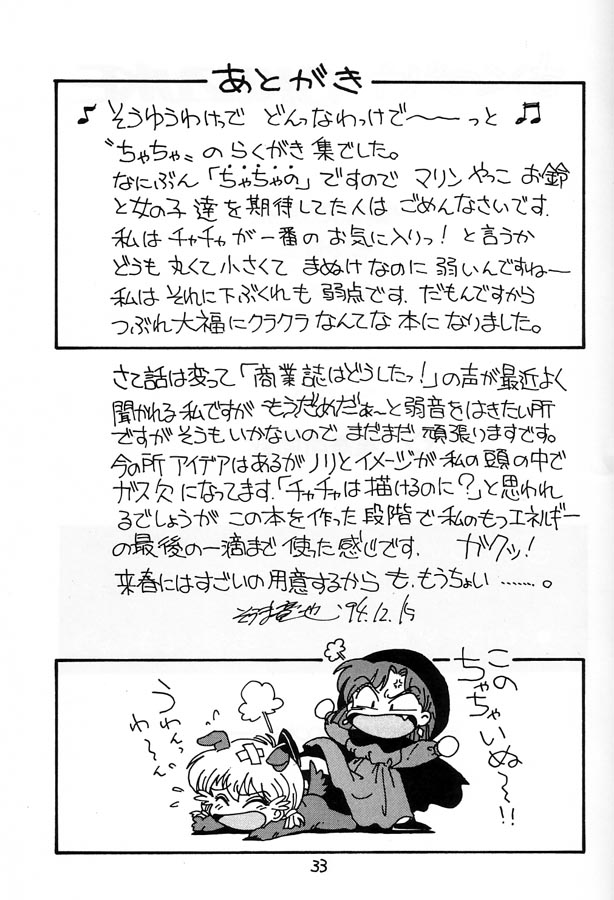 あとがき
♪そうゆうわけっで どんっなわっけで〜〜っと♫
〝ちゃちゃ〟のらくがき集でした。
なにぶん「ちゃちゃの」ですので マリン やっこ お鈴
と女の子達を期待してた人は ごめんなさいです.
私はチャチャが一番の お気に入りっ!と言うか
どうも丸くて小さくて まぬけなのに弱いんですね〜
私は それに下ぶくれも 弱点です. だもんですから
つぶれ大福にクラクラなんてな本になりました。
さて話は変って「商業誌はどうしたっ!」の声が最近よく
聞かれる私ですが もうだめだぁ〜と弱音をはきたい所
ですが そうもいかないので まだまだ 頑張りますです。
今の所 アイデアはあるが ノリとイメージが 私の頭の中で
ガス欠になってます.「チャチャは描けるのに?」と思われ
るでしょうが この本を作った段階で私のもつエネルギー
の最後の一滴まで 使った感じです. ガクッ!
来春にはすごいの用意するから も、もうちょい……。
'94.12.15
この
ちゃちゃいぬ〜〜!!
うわんっ
わ〜ん
33